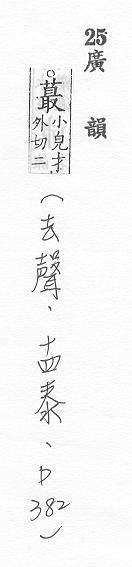 25廣韻
○蕞小皃才外切二
(去聲、十四泰、P382)